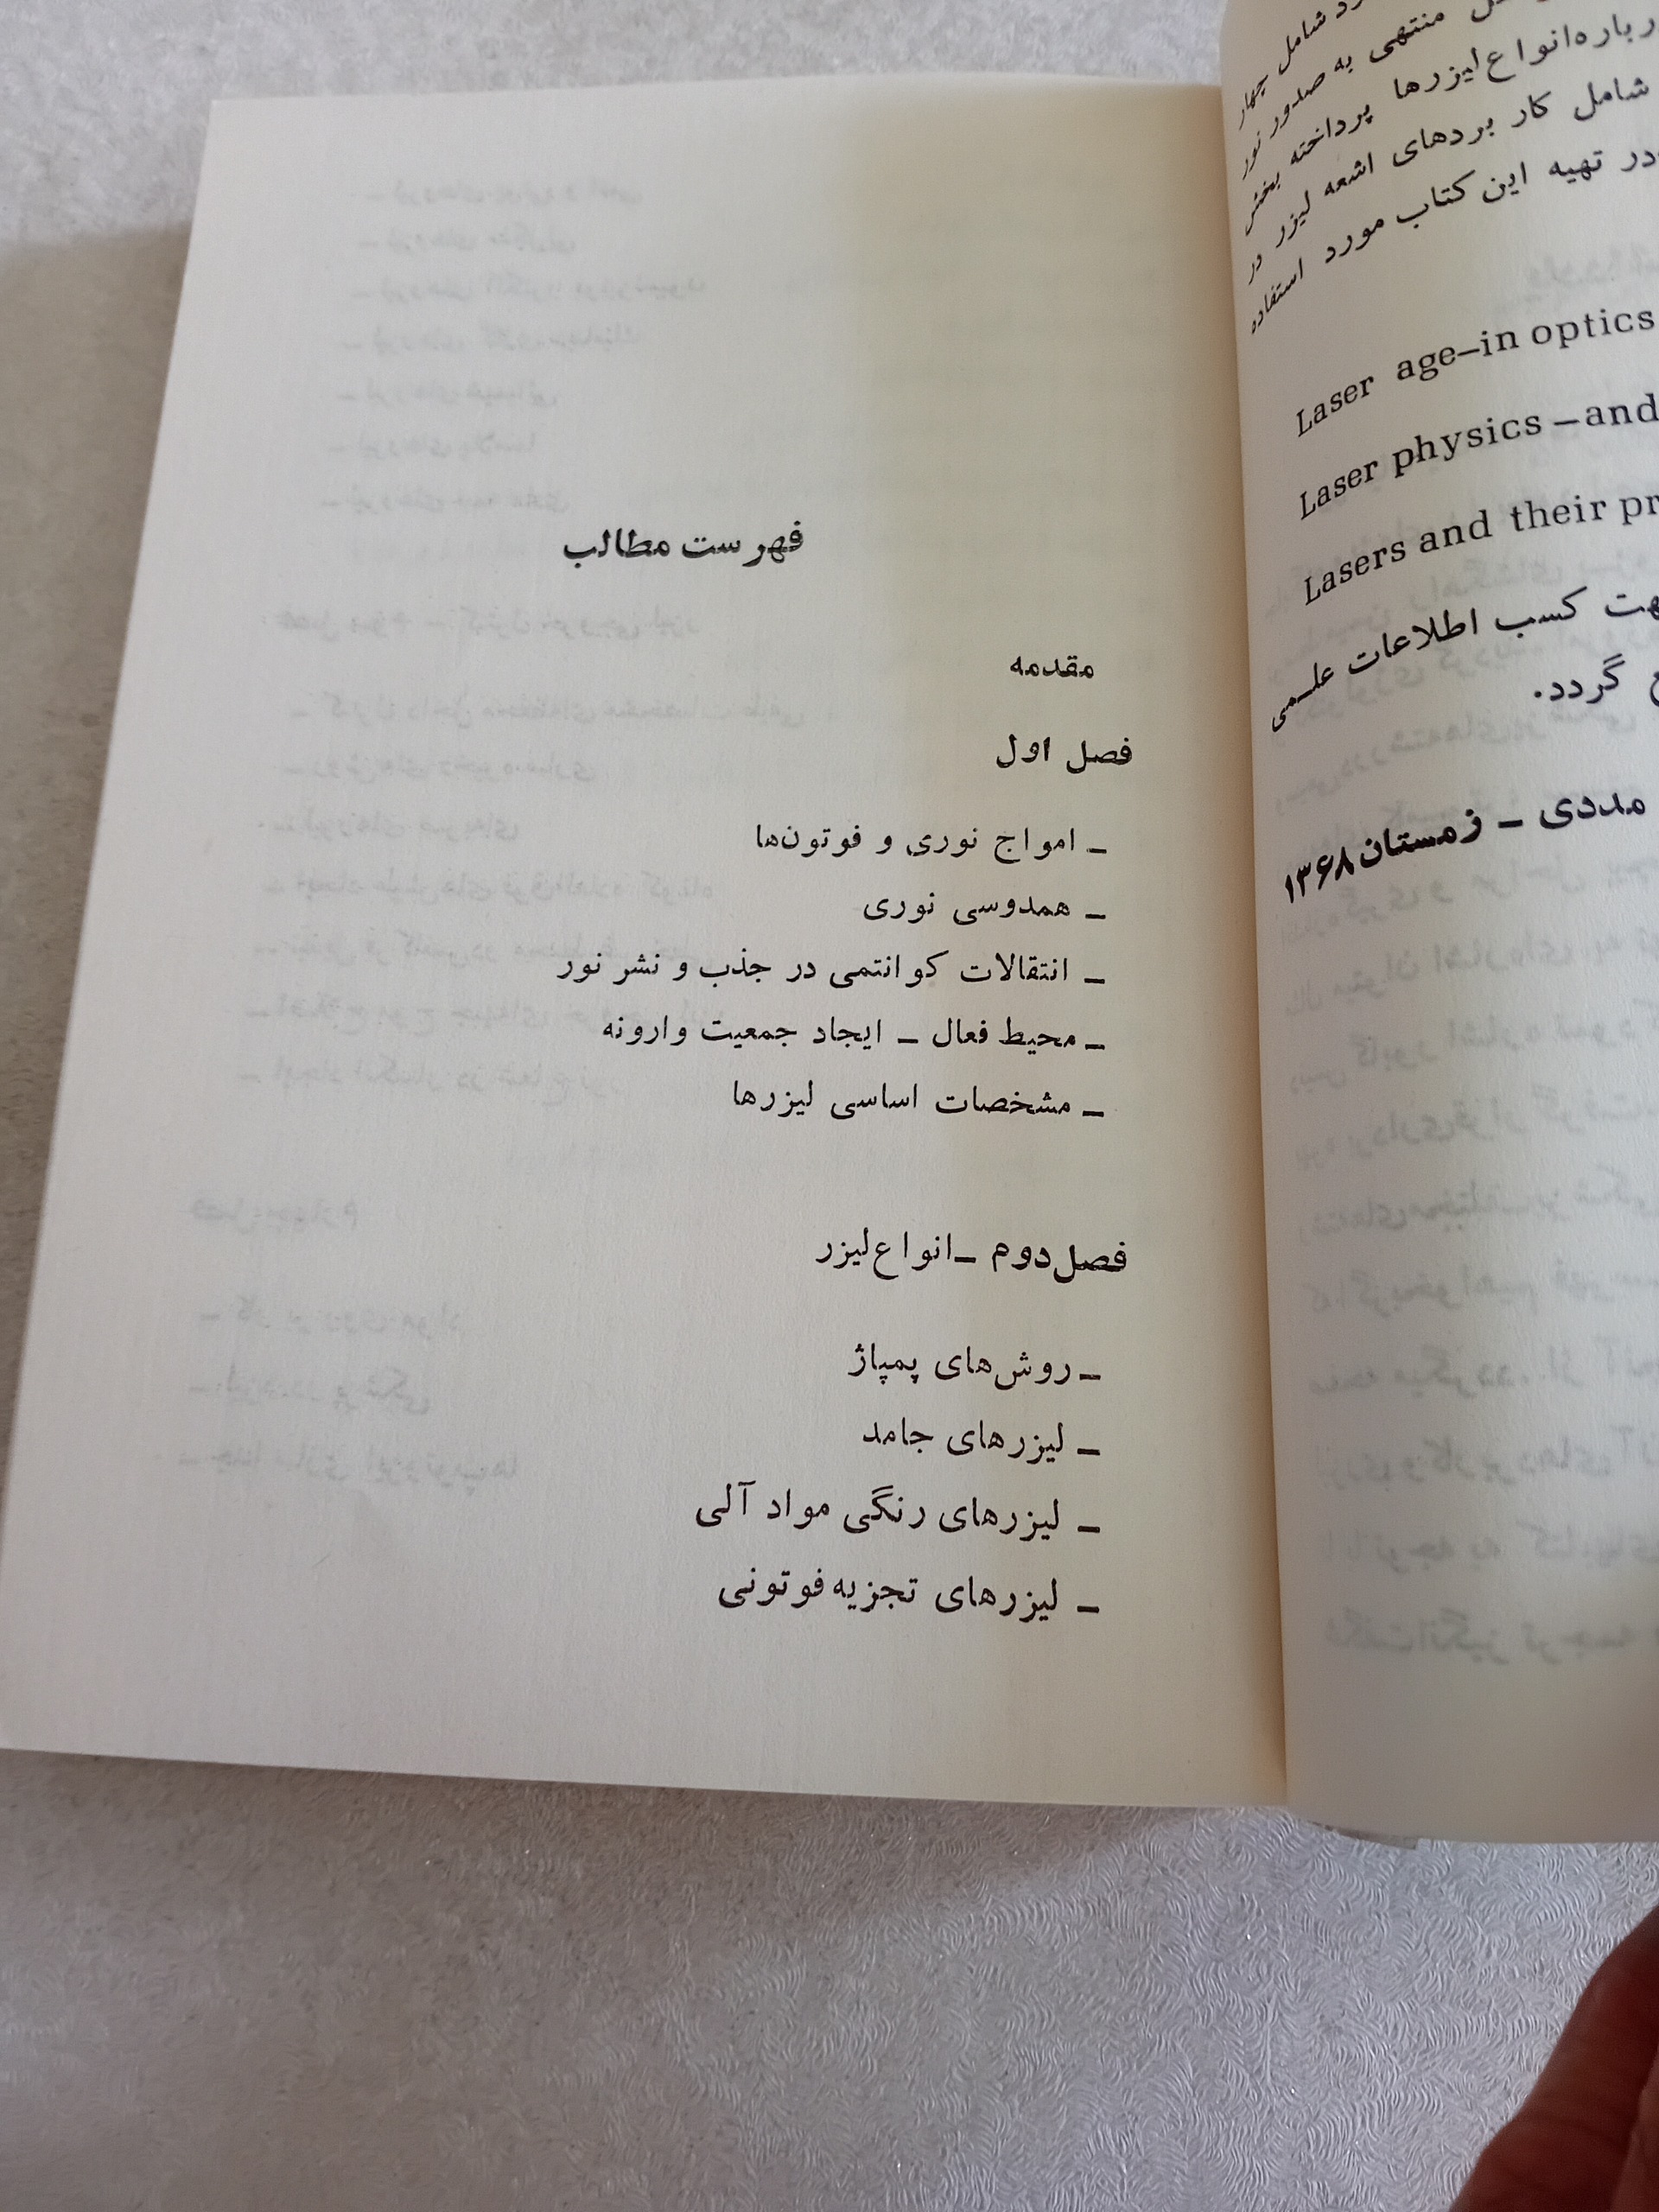 شامل چهار
منتهی به صدور نور
درباره‌انواع‌لیزرها پرداخته بخش
شامل کار بردهای اشعه لیزر در
در تهیه این کتاب مورد استفاده
Laser age–in optics
Laser physics –and
Lasers and their
جهت کسب اطلاعات علمی
گردد.
مددی – زمستان ۱۳۶۸
فهرست مطالب
مقدمه
فصل اول
– امواج نوری و فوتون‌ها
– همدوسی نوری
– انتقالات کوانتمی در جذب و نشر نور
– محیط فعال – ایجاد جمعیت وارونه
– مشخصات اساسی لیزرها
فصل دوم – انواع لیزر
– روش‌های پمپاژ
– لیزرهای جامد
– لیزرهای رنگی مواد آلی
– لیزرهای تجزیه فوتونی